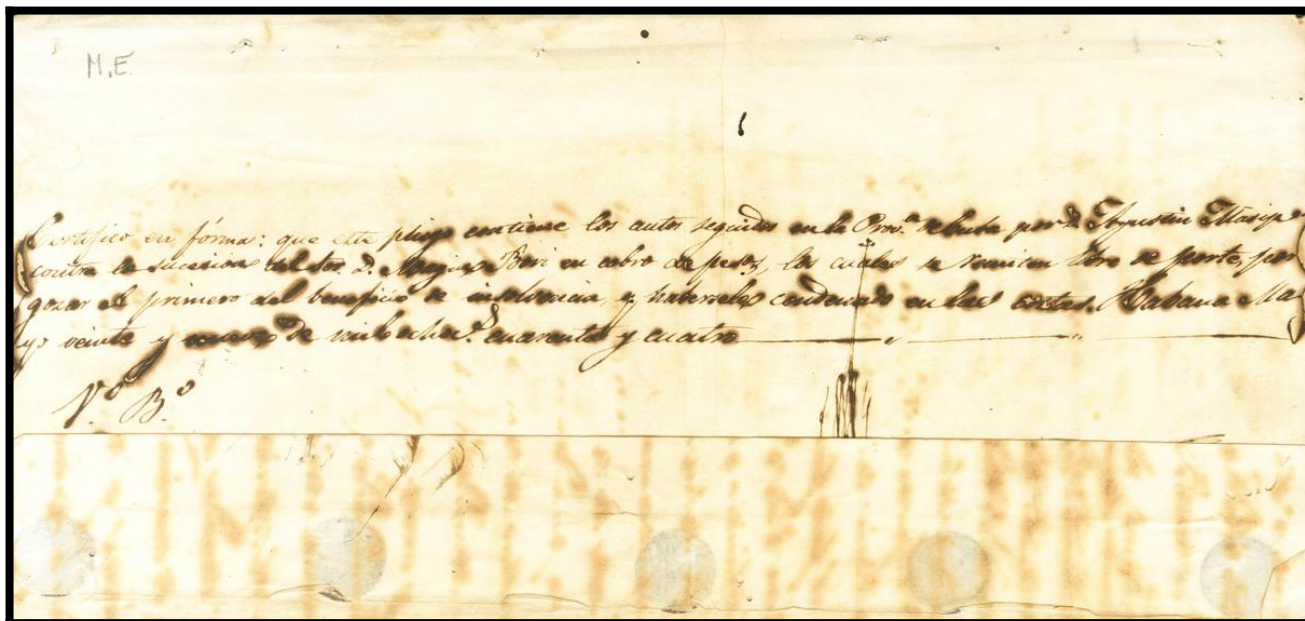 M.E.
Certifico en fórma: que este pliego contiene los autos seguidos en la Prov.ª de Cuba por D. Agustin Masip
contra la sucesion del D. Bori en cobro de pesos, los cuales se remiten libre de porte, por
gozar el primero del beneficio de insolvencia, y haversele condenado en las costas. Habana Ma
yo veinte y nueve de mil ochc.s cuarenta y cuatro
V.º B.º